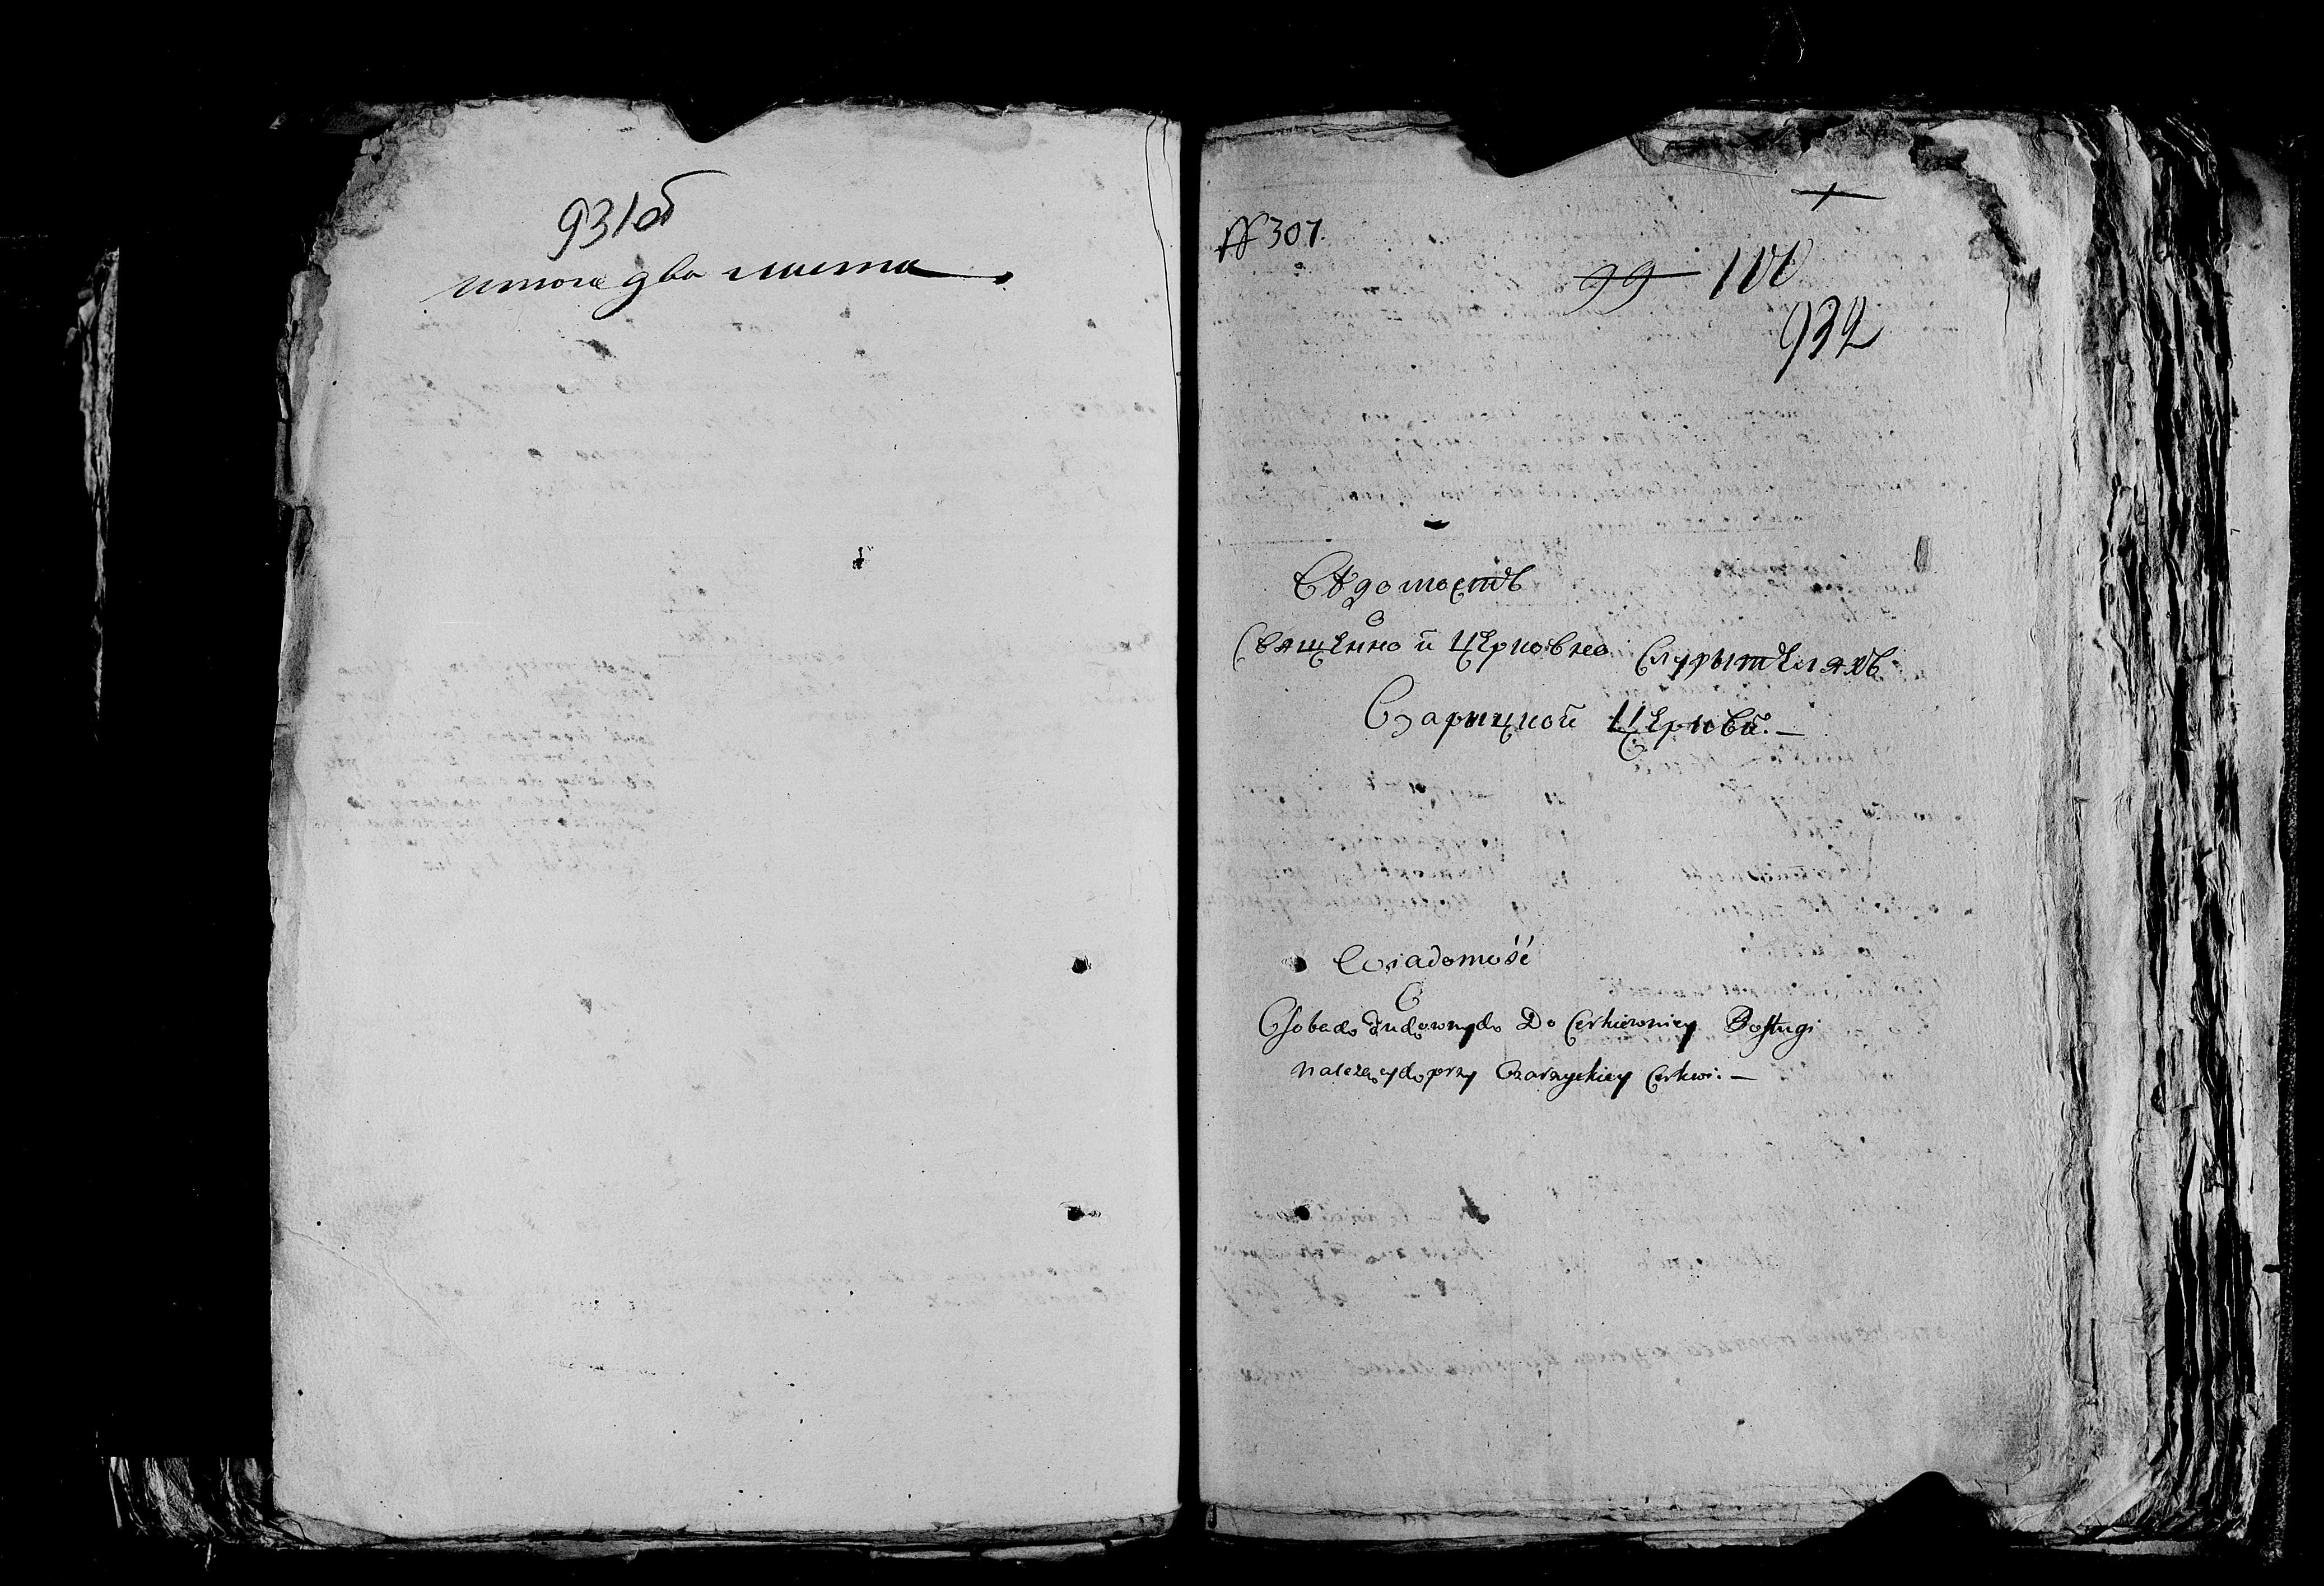 931об
итого два листа
№ 307.
99 100
932
Ведомость
О
Священно и Церковно Служытеляхъ
Озарицкой Церкви. —
Wiadomość
O
Osobach Duchownych Do Cerkiewney Posługi
Należących przy Ozarzyckiey Cerkwi. —